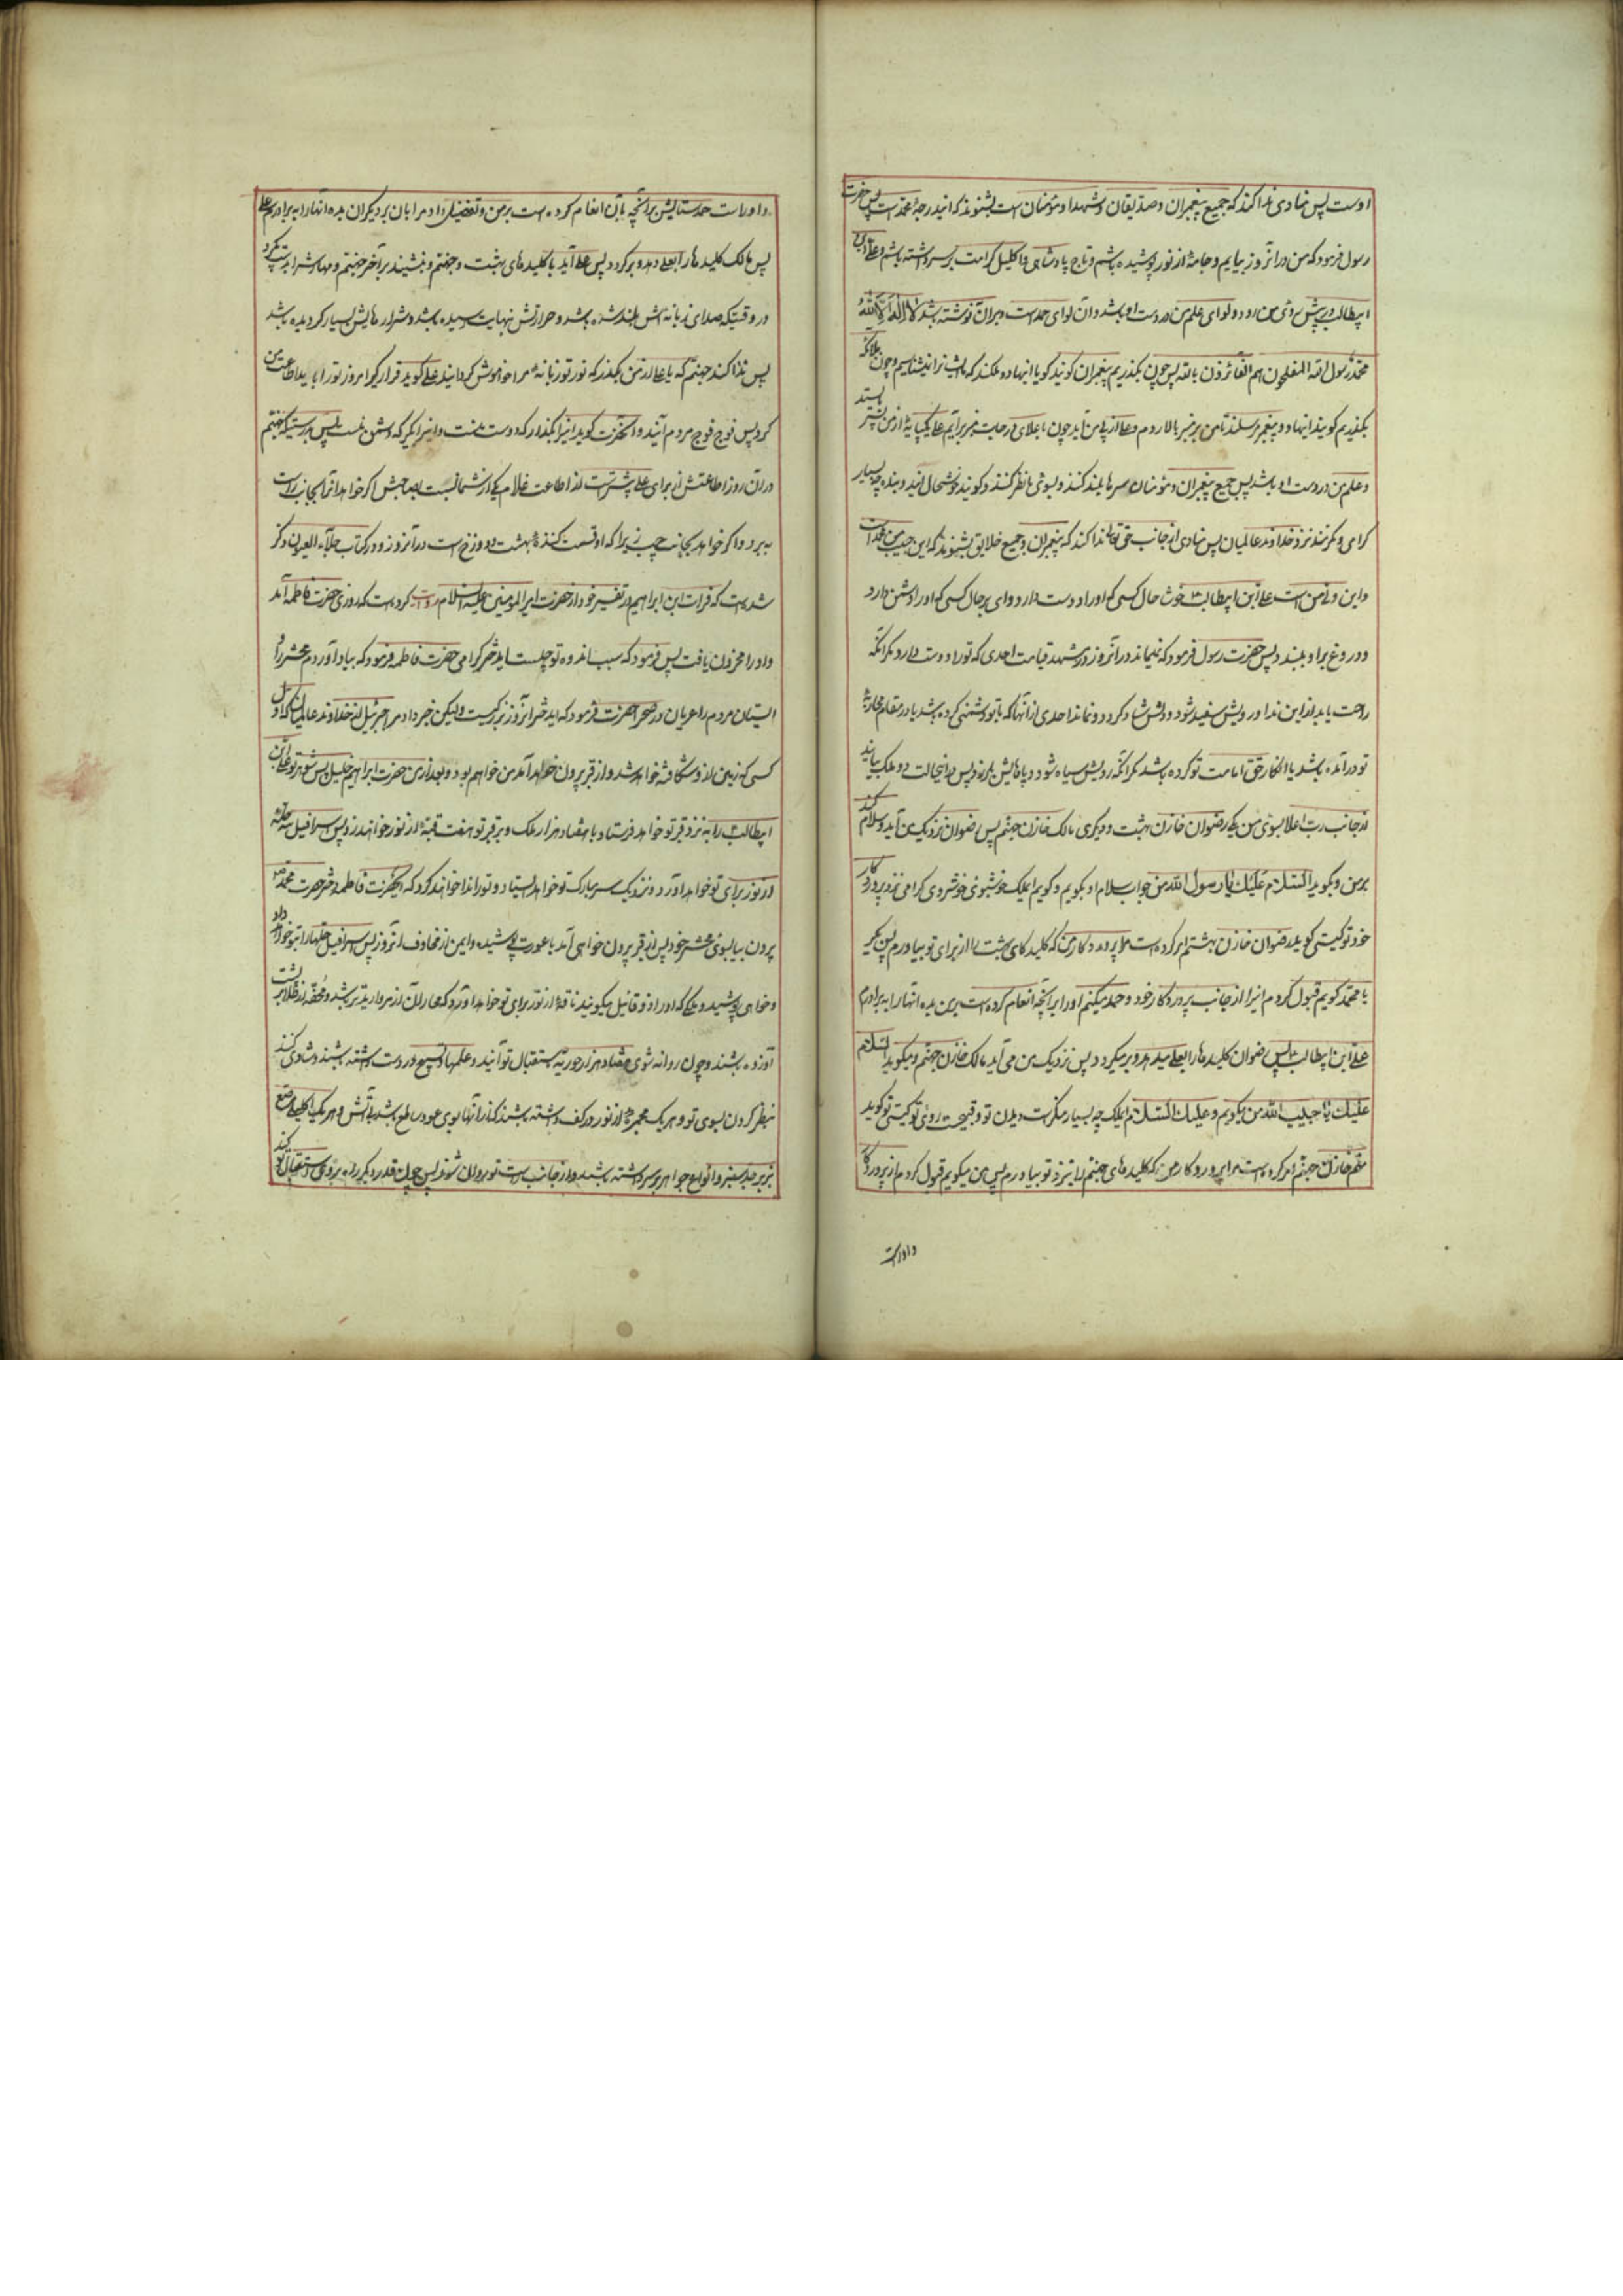 اوست پس منادی ندا کند که جمیع پیغمبران و صدیقان و شهدا و مؤمنان است بشنوند که این درجهٔ محمد است پس حضرت
رسول فرمود که من در انروز بیایم و جامهٔ از نور پوشیده باشم و تاج پادشاهی و اکلیل کرامت بر سر داشته باشم و علی ابن
ابیطالب در پیش روی من رود و لوای علم من در دست او باشد و ان لوای حمد است و بران نوشته باشد لا اله الا الله
محمد رسول الله المفلحون هم الفائزون بالله پس چون بگذریم به پیغمبران گویند گویا اینها دو ملکند که ما نمیشناسیم و چون بملائکه
بگذریم گویند اینها دو پیغمبر مرسلند تا من بر منبر بالا روم و علی از پی من آید چون باعلای درجات منبر برآیم علی یکپایه از من پستتر بایستد
و علم من در دست او باشد پس جمیع پیغمبران و مؤمنان سرها بلند کنند و بسوی ما نظر کنند و گویند خوشحال این دو بنده چه بسیار
گرامی و مکرمند نزد خداوند عالمیان پس منادی از جانب حق تعالی ندا کند که پیغمبران و جمیع خلایق بشنوند که این حبیب من محمد است
و این ولی من است علی ابن ابیطالب خوشا حال کسی که او را دوست دارد و وای بر حال کسی که او را دشمن دارد
و دروغ بر او ببندد پس حضرت رسول فرمود که نمیماند در انروز در مشهد قیامت احدی که تو را دوست دارد مگر انکه
راحت یابد از این ندا و رویش سفید شود و دلش شاد گردد و نماند احدی از انها که با تو دشمنی کرده باشد یا در مقام محاربهٔ
تو درآمده باشد یا انکار حق امامت تو کرده باشد مگر انکه رویش سیاه شود و پاهایش بلرزد پس در اینحالت دو ملک بیایند
از جانب رب اعلا بسوی من یکی رضوان خازن بهشت و دیگری مالک خازن جهنم پس رضوان نزدیک من آید و سلام کند
بر من و بگوید السلام علیک یا رسول الله من جواب سلام او بگویم و گویم ایملک خوشبوی خوشروی گرامی نزد پروردگار
خود تو کیستی گوید رضوان خازن بهشتم امر کرده است مرا پروردگار من که کلیدهای بهشت را از برای تو بیاورم پس بگیر
یا محمد گویم قبول کردم اینرا از جانب پروردگار خود و حمد میکنم او را بر انچه انعام کرده است بمن بده انها را به برادرم
علی ابن ابیطالب پس رضوان کلیدها را بعلی میدهد و برمیگردد پس نزدیک من می آید مالک خازن جهنم و میگوید السلام
علیک یا حبیب الله من میگویم و علیک السلام ایملک چه بسیار منکر است دیدن تو و قبیح است روی تو کیستی تو گوید
منم خازن جهنم امر کرده است مرا پروردگار من که کلیدهای جهنم را بنزد تو بیاورم پس من میگویم قبول کردم از پروردگار
و او راست
و او راست حمد ستایش بر انچه بان انعام کرده است بر من و تفضیل داد مرا بان بر دیگران بده انها را به برادرم علی
پس مالک کلیدها را بعلی دهد و برگردد پس علی آید با کلیدهای بهشت و جهنم و بنشیند بر آخر جهنم و مهارش را بدست گیرد
در وقتیکه صدای زبانه اش بلند شده باشد و حرارتش نهایت رسیده باشد و شرارهایش بسیار گردیده باشد
پس ندا کند جهنم که یا علی از من بگذر که نور تو زبانهٔ مرا خاموش گردانید علی گوید قرار گیر امروز تو را باید اطاعت من
کرد پس فوج فوج مردم آیند و انحضرت گوید اینرا بگذار که دوست منست و اینرا بگیر که دشمن منست پس بدرستیکه جهنم
در ان روز اطاعتش از برای علی بیشتر است از اطاعت غلام یکی از شما نسبت بصاحبش اگر خواهد انرا بجانب راست
ببرد و اگر خواهد بجانب چپ زیرا که او قسمت کنندهٔ بهشت و دوزخ است در انروز و در کتاب جلاء العیون ذکر
شده است که فرات ابن ابراهیم در تفسیر خود از حضرت امیر المومنین علیه السلام روایت کرده است که روزی حضرت فاطمه آمد
و او را محزون یافت پس فرمود که سبب اندوه تو چیست ای دختر گرامی حضرت فاطمه فرمود که بیاد آوردم محشر را و
ایستان مردم را عریان در صحرا حضرت فرمود که ای دختر انروز بزرگیست ولیکن خبر داد مرا جبرئیل از خداوند عالمیان که اول
کسی که زمین از او شکافته خواهد شد و از قبر بیرون خواهد آمد من خواهم بود و بعد از من حضرت ابراهیم خلیل پس شوهر تو علی ابن
ابیطالب را به نزد قبر تو خواهد فرستاد با هفتاد هزار ملک و بر قبر تو هفت قبهٔ از نور خواهند زد پس اسرافیل سه حله
از نور برای تو خواهد آورد و نزدیک سر مبارک تو خواهد ایستاد و تو را ندا خواهد کرد که ایحضرت فاطمه دختر حضرت محمد
بیرون بیا بسوی محشر خود پس از قبر بیرون خواهی آمد با عورت پوشیده و ایمن از مخاوف انروز پس اسرافیل حلها را بتو خواهد داد
و خواهی پوشید و ملکی که او را ذوقائیل میگویند ناقهٔ از نور برای تو خواهد آورد که مهار ان از مروارید تر باشد و محفهٔ از طلا بر پشت
آن زده باشند و چون روانه شوی هفتاد هزار حوریه باستقبال تو آیند و علمهای تسبیح در دست داشته باشند و شادی کنند
بنظر کردن بسوی تو و هر یک مجمرهٔ از نور در کف داشته باشند که از انها بوی عود ساطع باشد بی آتش و هر یک اکلیلی مرصع
بزبرجد سبز و انواع جواهر بر سر داشته باشند و از جانب راست تو روان شوند پس چون قدر دیگر راه بروی استقبال تو کند